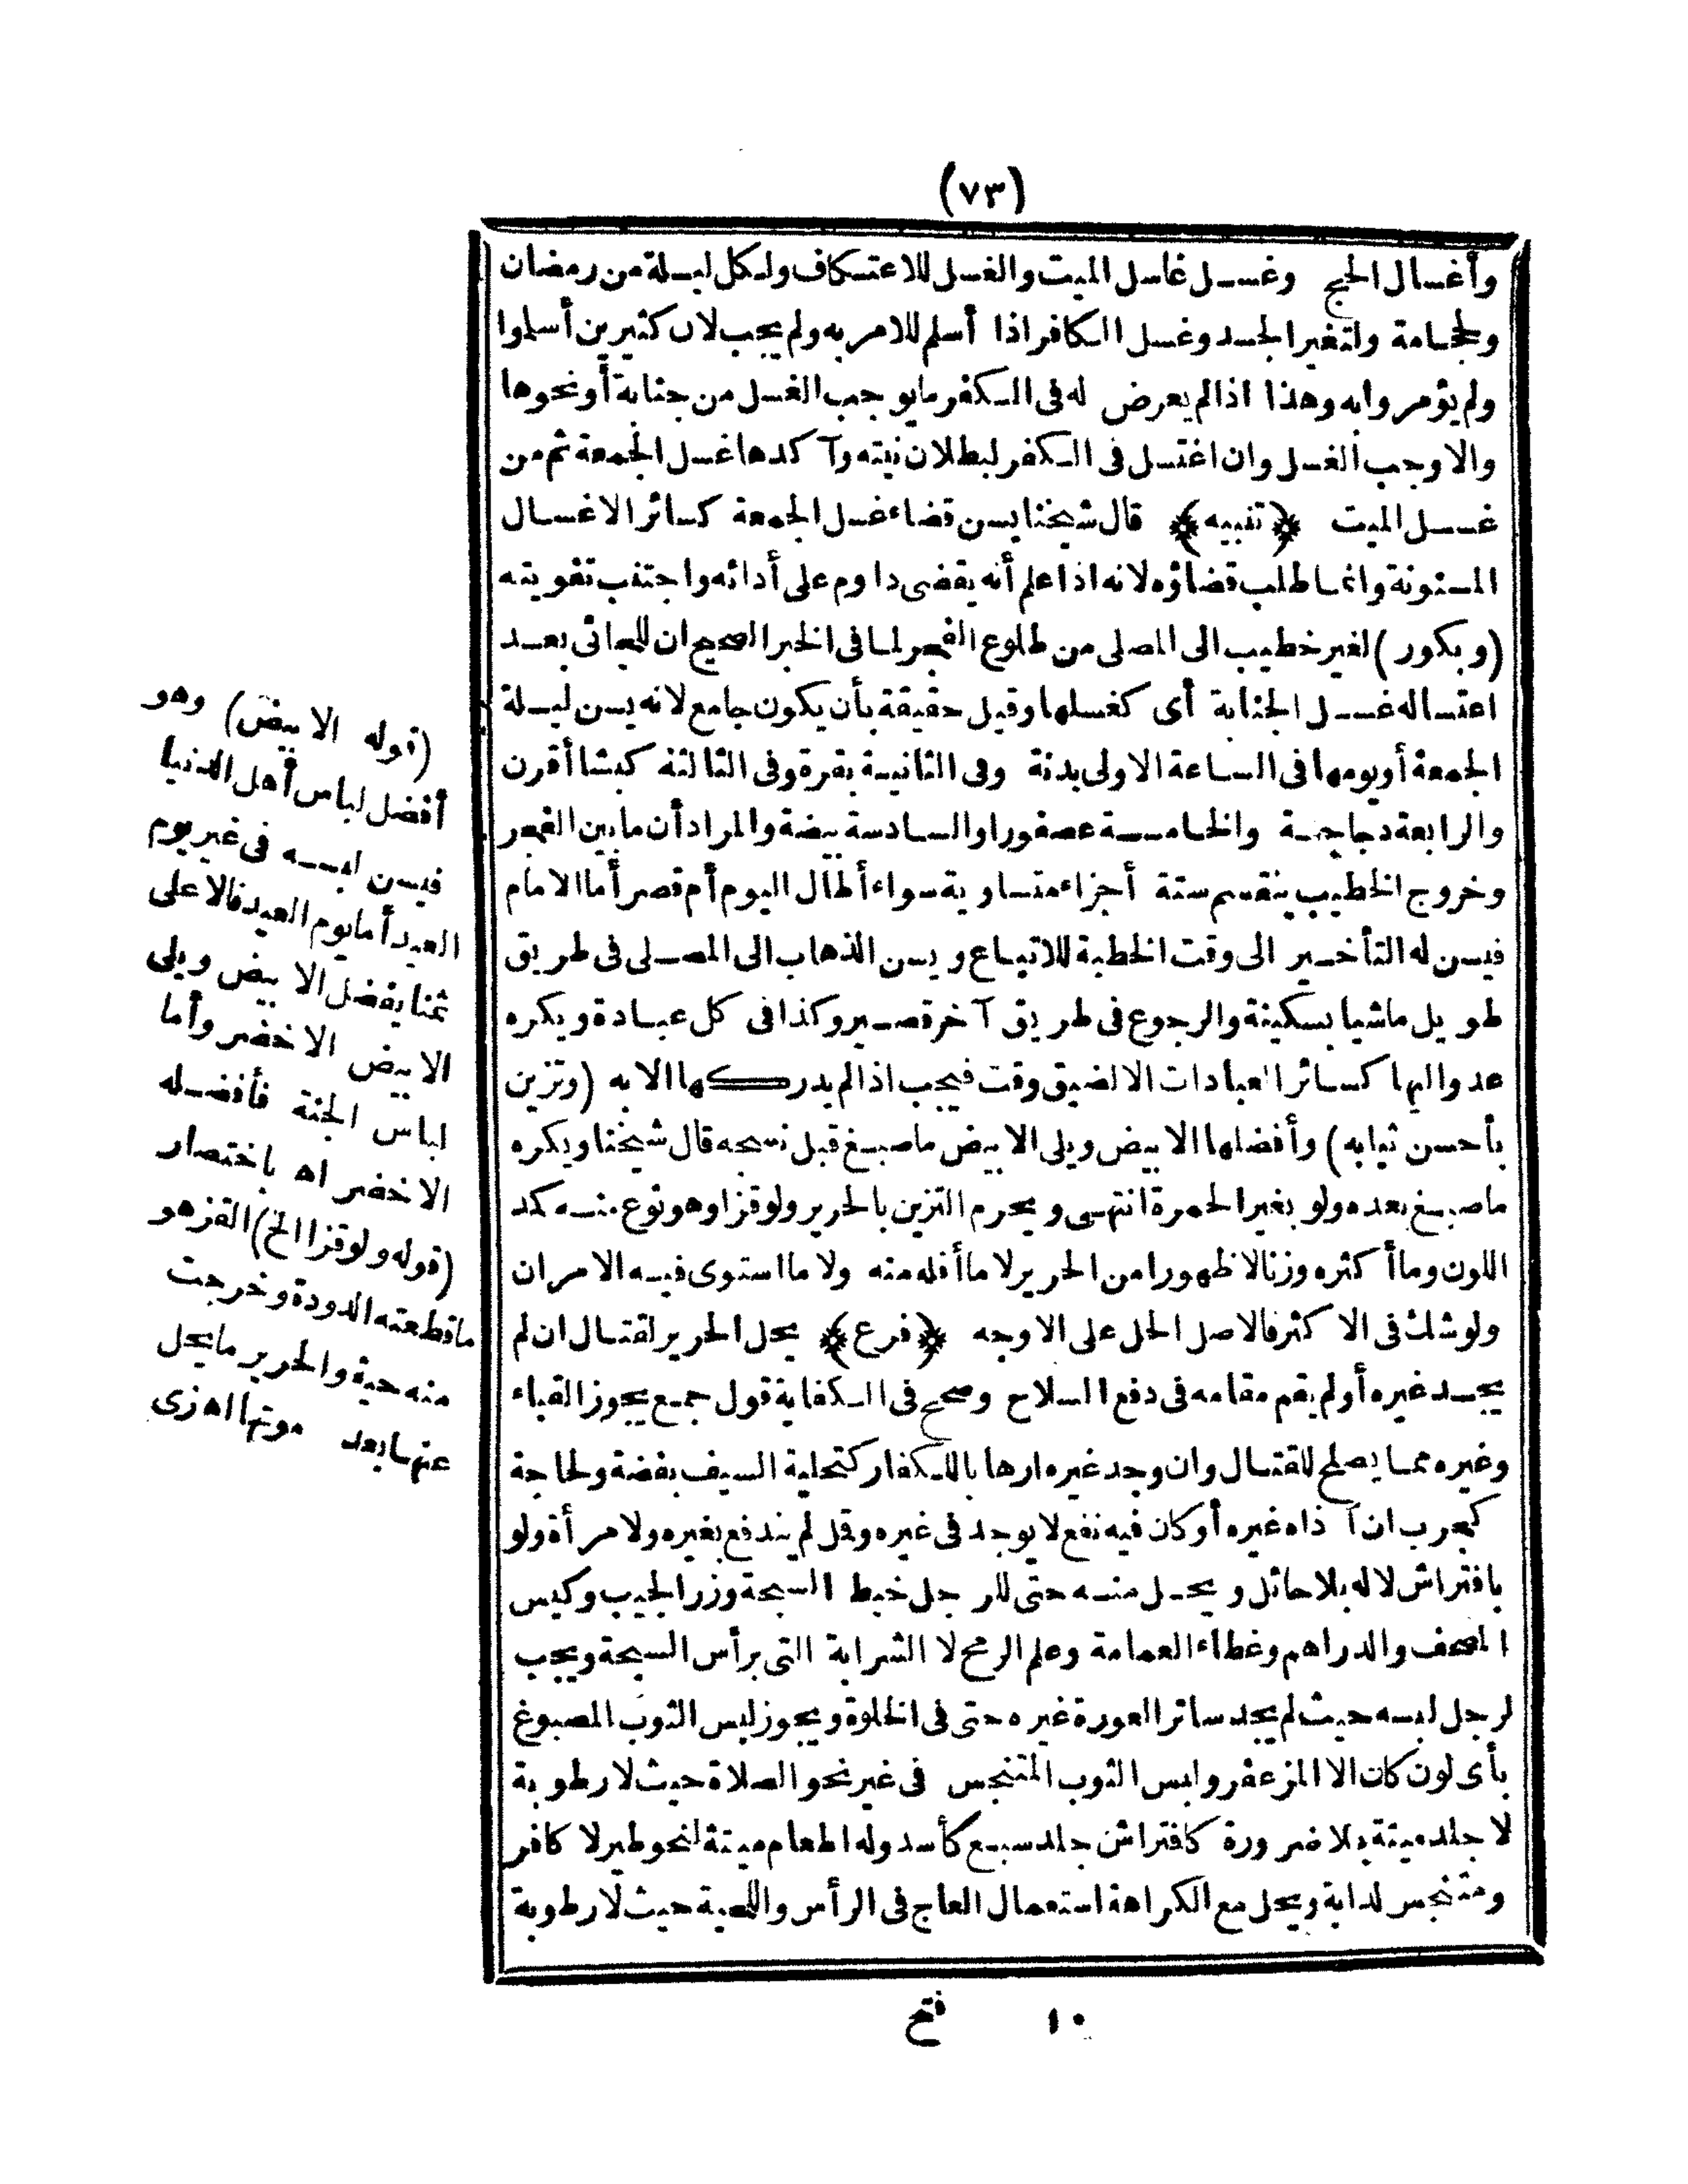 (٧٣)
وأغسال الحج وغسل غاسل الميت والغسل للاعتكاف ولكل ليلة من رمضان
ولحجامة ولتغير الجسد وغسل الكافر اذا أسلم للامر به ولم يجب لان كثيرين أسلوا
ولم يؤمر وابه وهذا اذا لم يعرض له فى الكفر ما يوجب الغسل من جنابة أو نحوها
والا وجب الغسل وان اغتسل فى الكفر لبطلان نيته وآكدها غسل الجمعة ثم من
غسل الميت ﴿تنبيه﴾ قال شيخنا يسن قضاء غسل الجمعة كسائر الاغسال
المسنونة وانما طلب قضاؤه لانه اذا علم أنه يقضى داوم على أدائه واجتنب تفويته
(وبكور) لغير خطيب الى المصلى من طلوع الفجر لما فى الخبر الصحيح ان للجائى بعد
اعتساله غسل الجنابة أى كغسلها وقيل حقيقة بأن يكون جامع لانه يسن ليلة
الجمعة أو يومها فى الساعة الاولى بدنة وفى الثانية بقرة وفى الثالثة كبشا أقرن
والرابعة دجاجة والخامسة عصفورا والسادسة بيضة والمراد أن ما بين الفجر
وخروج الخطيب ينقسم ستة أجزاء متساوية سواء أطال اليوم أم قصر أما الامام
فيسن له التأخير الى وقت الخطبة للاتباع ويسن الذهاب الى المصلى فى طريق
طويل ماشيا بسكينة والرجوع فى طريق آخر قصير وكذا فى كل عبادة ويكره
عدو اليها كسائر العبادات الا لضيق وقت فيجب اذا لم يدركها الا به (وتزين
بأحسن ثيابه) وأفضلها الابيض ويلى الابيض ما صبغ قبل نسجه قال شيخنا ويكره
ما صبغ بعده ولو بغير الحمرة انتهى ويحرم التزين بالحرير ولو قزا وهو نوع منه كد
اللون وما أكثره وزنا لا ظهورا من الحرير لا ما أقله منه ولا ما استوى فيه الامران
ولو شك فى الاكثر فالاصل الحل على الاوجه ﴿فرع﴾ يحل الحرير لقتال ان لم
يجد غيره أو لم يقم مقامه فى دفع السلاح وصحح فى الكفاية قول جمع يجوز القباء
وغيره مما يصلح للقتال وان وجد غيره ارهابا للكفار كتحلية السيف بفضة ولحاجة
كجرب ان آذاه غيره أو كان فيه نفع لا يوجد فى غيره وقمل لم يندفع بغيره ولامرأة ولو
بافتراش لا له بلا حائل ويحل منه حتى للرجل خيط السبحة وزر الجيب وكيس
المصحف والدراهم وغطاء العمامة وعلم الرمح لا الشرابة التى برأس السبحة ويجب
لرجل لبسه حيث لم يجد ساتر العورة غيره حتى فى الخلوة ويجوز لبس الثوب المصبوغ
بأى لون كان الا المزعفر ولبس الثوب المتنجس فى غير نحو الصلاة حيث لا رطوبة
لا جلد ميتة بلا ضرورة كافتراش جلد سبع كأسد وله اطعام ميتة لنحو طير لا كافر
ومتنجس لدابة ويحل مع الكراهة استعمال العاج فى الرأس واللحية حيث لا رطوبة
(قوله الابيض) وهو
أفضل لباس أهل الدنيا
فيسن لبسه فى غير يوم
العيد أما يوم العيد فالاعلى
ثمنا يفضل الابيض ويلى
الابيض الاخضر وأما
لباس الجنة فأفضله
الاخضر اه باختصار
(قوله ولو قزا الخ) القز هو
ما قطعته الدودة وخرجت
منه حية والحرير ما يحل
عنها بعد موتها اه زى
١٠ فتح